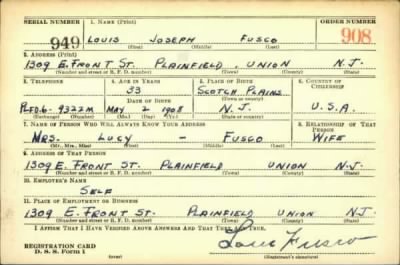 SERIAL NUMBER 1. NAME (Print) ORDER NUMBER
949 LOUIS JOSEPH FUSCO 908
(First) (Middle) (Last)
2. ADDRESS (Print)
1309 E. FRONT ST. PLAINFIELD, UNION N.J.
(Number and street or R. F. D. number) (Town) (County) (State)
3. TELEPHONE 4. AGE IN YEARS 5. PLACE OF BIRTH 6. COUNTRY OF CITIZENSHIP
33 SCOTCH PLAINS
DATE OF BIRTH (Town or county)
PLFD.6- 9322M MAY 2 1908 N.J. U.S.A.
(Exchange) (Number) (Mo.) (Day) (Yr.) (State or country)
7. NAME OF PERSON WHO WILL ALWAYS KNOW YOUR ADDRESS 8. RELATIONSHIP OF THAT PERSON
MRS. LUCY - FUSCO WIFE
(Mr., Mrs., Miss) (First) (Middle) (Last)
9. ADDRESS OF THAT PERSON
1309 E. FRONT ST. PLAINFIELD UNION N.J.
(Number and street or R. F. D. number) (Town) (County) (State)
10. EMPLOYER'S NAME
SELF
11. PLACE OF EMPLOYMENT OR BUSINESS
1309 E. FRONT ST. PLAINFIELD UNION N.J.
(Number and street or R. F. D. number) (Town) (County) (State)
I AFFIRM THAT I HAVE VERIFIED ABOVE ANSWERS AND THAT THEY ARE TRUE.
REGISTRATION CARD Louis Fusco
D. S. S. Form 1 (Registrant's signature)